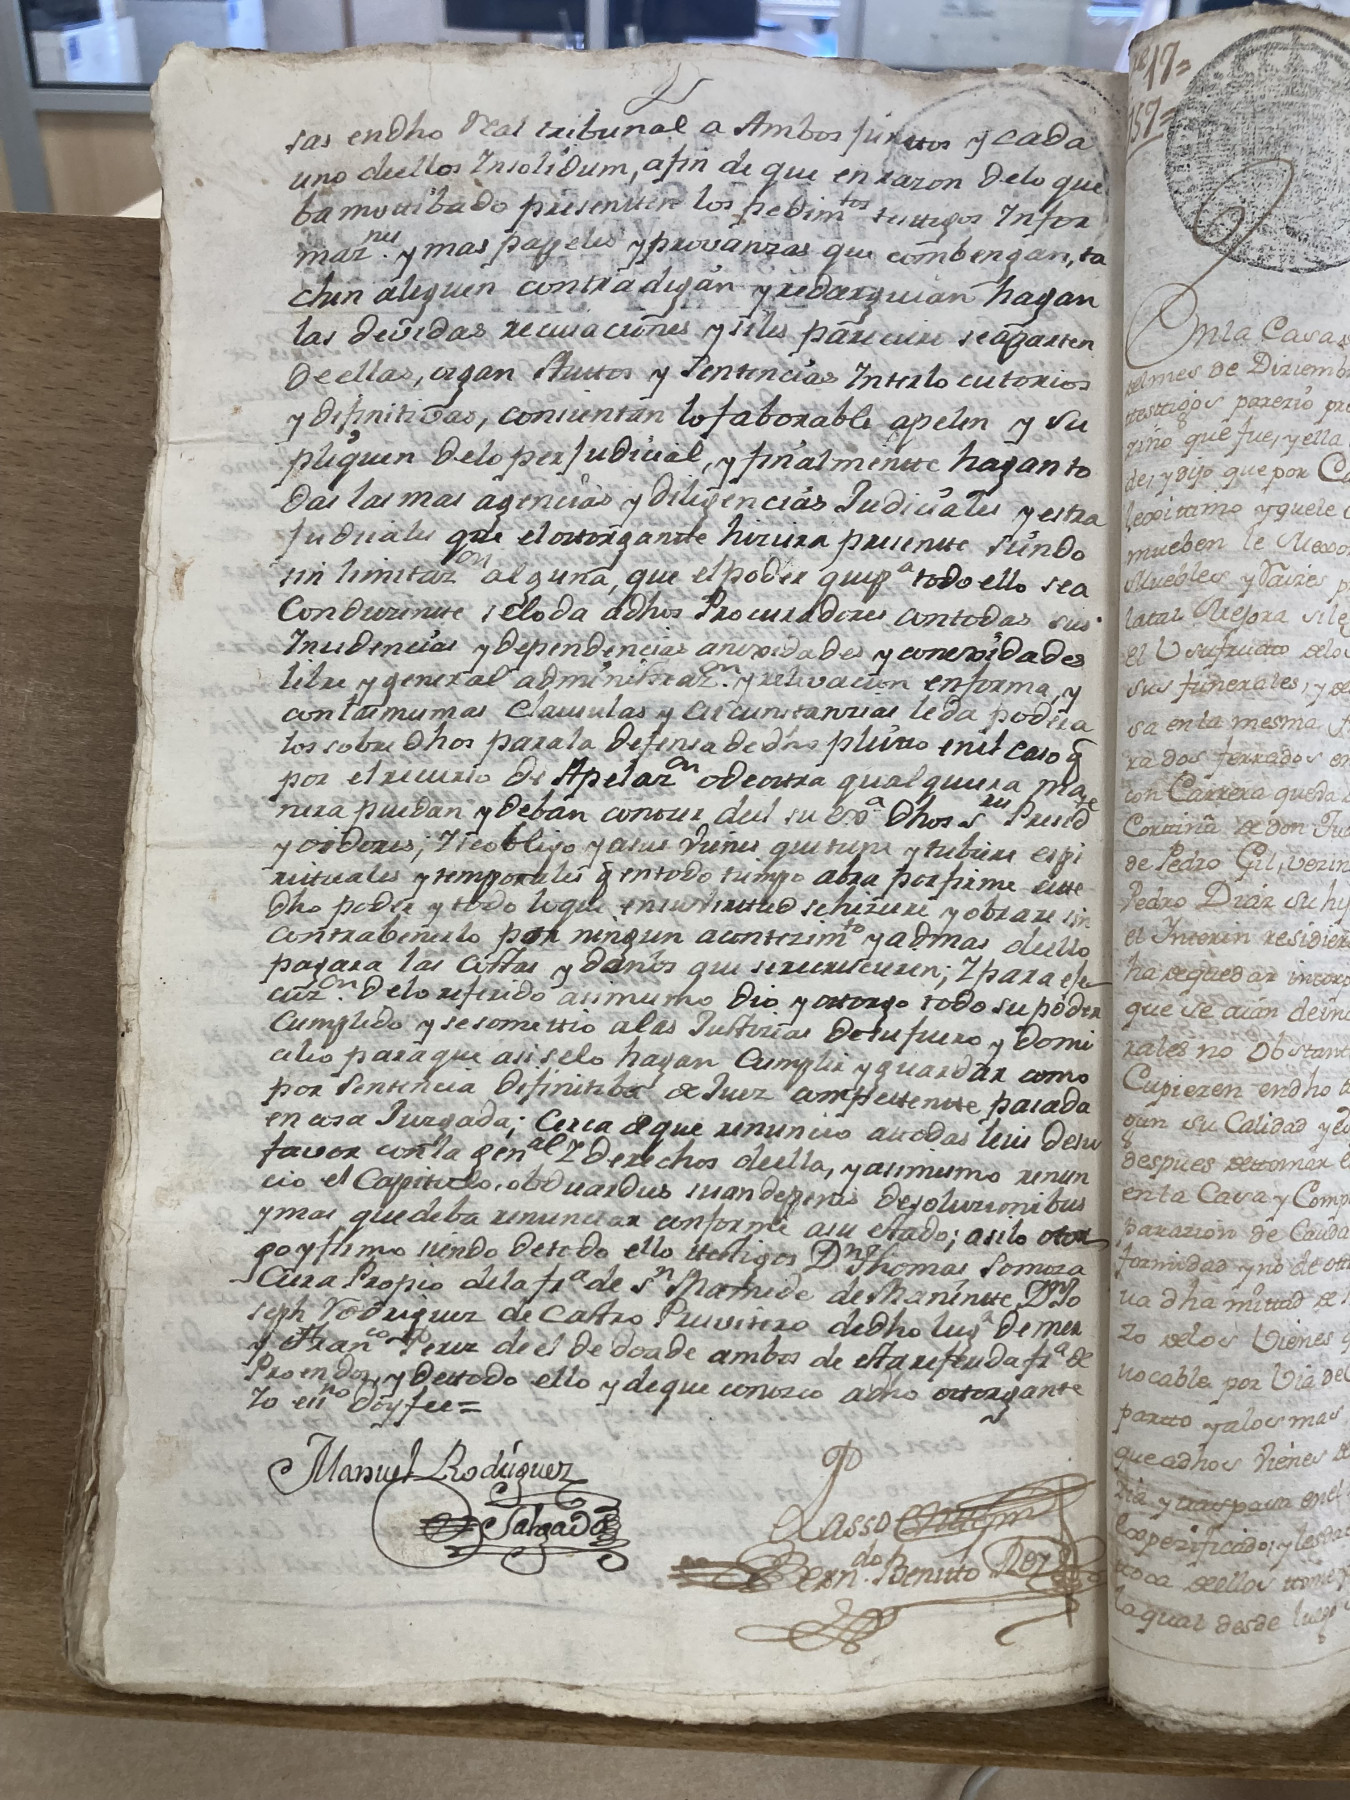 sas endho Real tribunal a Ambos juntos y cada
uno dellos Insolidum, afin de que en razon delo que
ba mottibado presentten los pedim.tos testigos Infor
maz.nes y mas papeles y provanzas que combengan, ta
chen aleguen contradigan y redarguian hagan
las devidas recusaciones y siles pareciere se aparten
de ellas, oigan Auttos y Sentencias Interlocutorios
y difinitivas, consientan lo faborable apelen y su
pliquen delo perjudicial, y finalmentte hagan to
das las mas agencias y diligencias Judiciales y estra
judiciales que el ottorgantte hiciera presentte siendo
sin limitaz.on alguna, que el poder que p.a todo ello sea
Conduzentte selo da adhos Procuradores contodas sus
Insidencias y dependencias anexidades y conexidades
libre y general administraz.on y relevacion enforma, y
con las mismas Clausulas y circunstanzias le da poder a
los sobre dhos para la defensa de dho pleitto en el caso q
por el recurso de Apelaz.on o de ottra qualquiera ma
nera puedan y deban conozer del su Ex.a dhos S.res Presid.te
y oidores; Y se obligo y asus vienes que tiene y tubiere espi
rittuales y temporales q entodo tiempo abra por firme este
dho poder y todo lo que ensu virttud se hiziere y obrare sin
contrabenirlo por ningun acontezim.to y ademas dello
pagara las costas y daños que se recrescieren; Y para eje
cuz.on delo referido asimismo dio y ottorgo todo su poder
Cumplido y se somettio alas Justicias desu fuero y domi
cilio para que asi selo hagan Cumplir y guardar como
por sentencia difinitiba de Juez compettentte pasada
en cosa Juzgada; Cerca de que renuncio attodas leies desu
favor con la gen.al Y derechos della, y asimismo renun
cio el Capitulo, obduardus suan de penis de solucionibus
y mas que deba renunciar conforme asu estado; asilo otor
go y firmo siendo detodo ello testigos D.n Thomas Somoza
Cura Propio dela fr.a de S.n Mamede de Maninte D.n Jo
seph Rodriguez de Castro Presvitero de dho lug.r de mer
y Fran.co Perez de el de doade ambos de esta referida fr.a de
Proendos, y de ttodo ello y de que conozco adho ottorgante
Yo ess.no doy fee=
Manuel Rodriguez
Salgado
Passo
Bern.do Benitto Rey
17=
57=
Enla Casa
del mes de Diziemb
testtigos parezio
rino que fue, y ella
de, y dijo que por
lexittimo y quele
mueben le
Muebles y Raizes
latar Mejora
el Usufructo delos
sus funerales, y
sa enla mesma
rados terrados en
con Carrera queda
Corttiña de don Jua
de Pedro Gil, vezin
Pedro Diaz su hij
el Interin residiere
ha de quedar incorp
que se aian de
rales no obstant
Cupieren endho
aun su Calidad y
despues de tomar
enla Casa y Comp
parazion de Cauda
formidad y no de ott
va dha mittad de
zo delos Vienes
vocable por via de
partto y alos mas
que adhos vienes
zia y traspasa en el
expezificado; y
ttoca dellos
la qual desde luego